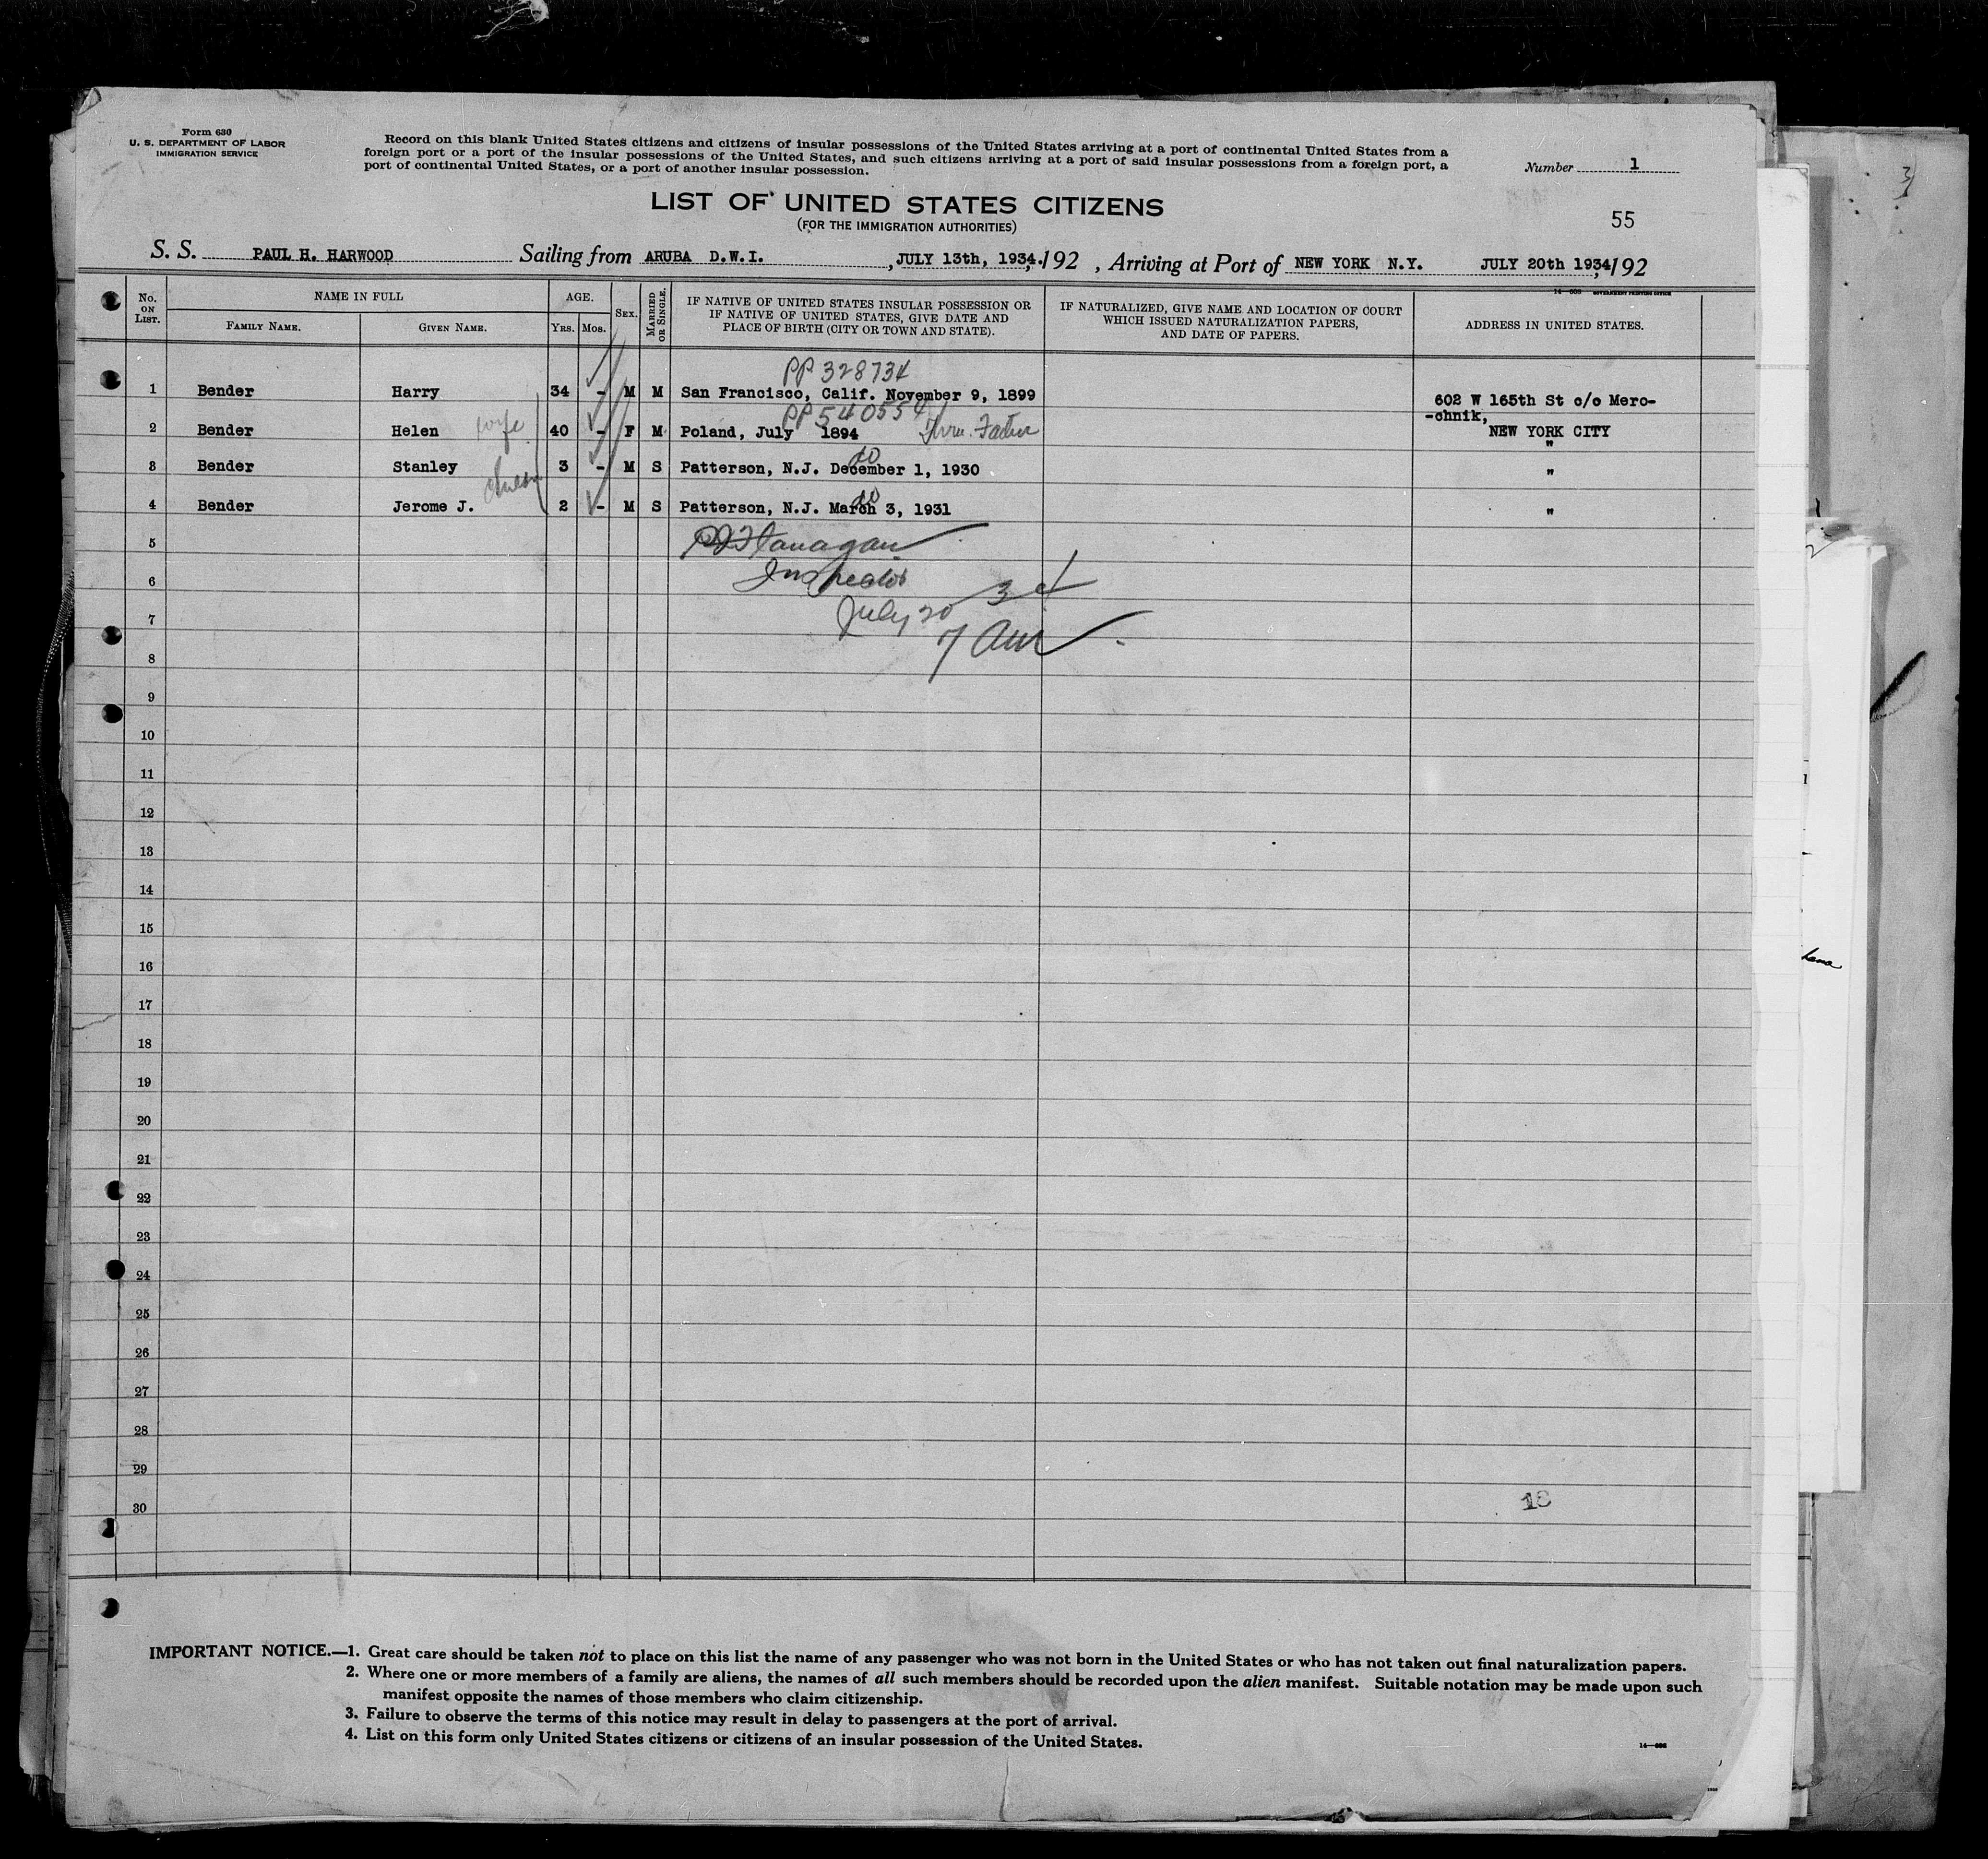 Form 630
U. S. DEPARTMENT OF LABOR
IMMIGRATION SERVICE
Record on this blank United States citizens and citizens of insular possessions of the United States arriving at a port of continental United States from a
foreign port or a port of the insular possessions of the United States, and such citizens arriving at a port of said insular possessions from a foreign port, a
port of continental United States, or a port of another insular possession.
Number 1
LIST OF UNITED STATES CITIZENS
(FOR THE IMMIGRATION AUTHORITIES)
55
S. S. PAUL H. HARWOOD Sailing from ARUBA D.W.I. , JULY 13th, 1934. , 192 , Arriving at Port of NEW YORK N.Y. JULY 20th 1934 , 192
No. ON LIST.
NAME IN FULL
FAMILY NAME. GIVEN NAME.
AGE.
YRS. MOS.
SEX.
MARRIED OR SINGLE.
IF NATIVE OF UNITED STATES INSULAR POSSESSION OR
IF NATIVE OF UNITED STATES, GIVE DATE AND
PLACE OF BIRTH (CITY OR TOWN AND STATE).
IF NATURALIZED, GIVE NAME AND LOCATION OF COURT
WHICH ISSUED NATURALIZATION PAPERS,
AND DATE OF PAPERS.
GOVERNMENT PRINTING OFFICE
ADDRESS IN UNITED STATES.
PP 328734
1 Bender Harry 34 - M M San Francisco, Calif. November 9, 1899 602 W 165th St c/o Mero-
-chnik,
PP 540554
2 Bender Helen wife 40 - F M Poland, July 1894 Thru. Father NEW YORK CITY
"
do
3 Bender Stanley 3 - M S Patterson, N.J. December 1, 1930 "
do
4 Bender Jerome J. 2 - M S Patterson, N.J. March 3, 1931 "
5 Flanagan
6 Inspector
7 July 20 34
8 7 AM
9
10
11
12
13
14
15
16
17
18
19
20
21
22
23
24
25
26
27
28
29
30
18
IMPORTANT NOTICE.—1. Great care should be taken not to place on this list the name of any passenger who was not born in the United States or who has not taken out final naturalization papers.
2. Where one or more members of a family are aliens, the names of all such members should be recorded upon the alien manifest. Suitable notation may be made upon such
manifest opposite the names of those members who claim citizenship.
3. Failure to observe the terms of this notice may result in delay to passengers at the port of arrival.
4. List on this form only United States citizens or citizens of an insular possession of the United States.